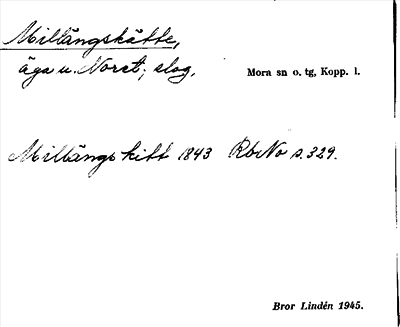 Millängskätte,
äga u. Noret; slog.
Mora sn o. tg, Kopp. l.
Millängs kitt 1843 RbNo s. 329.
Bror Lindén 1945.